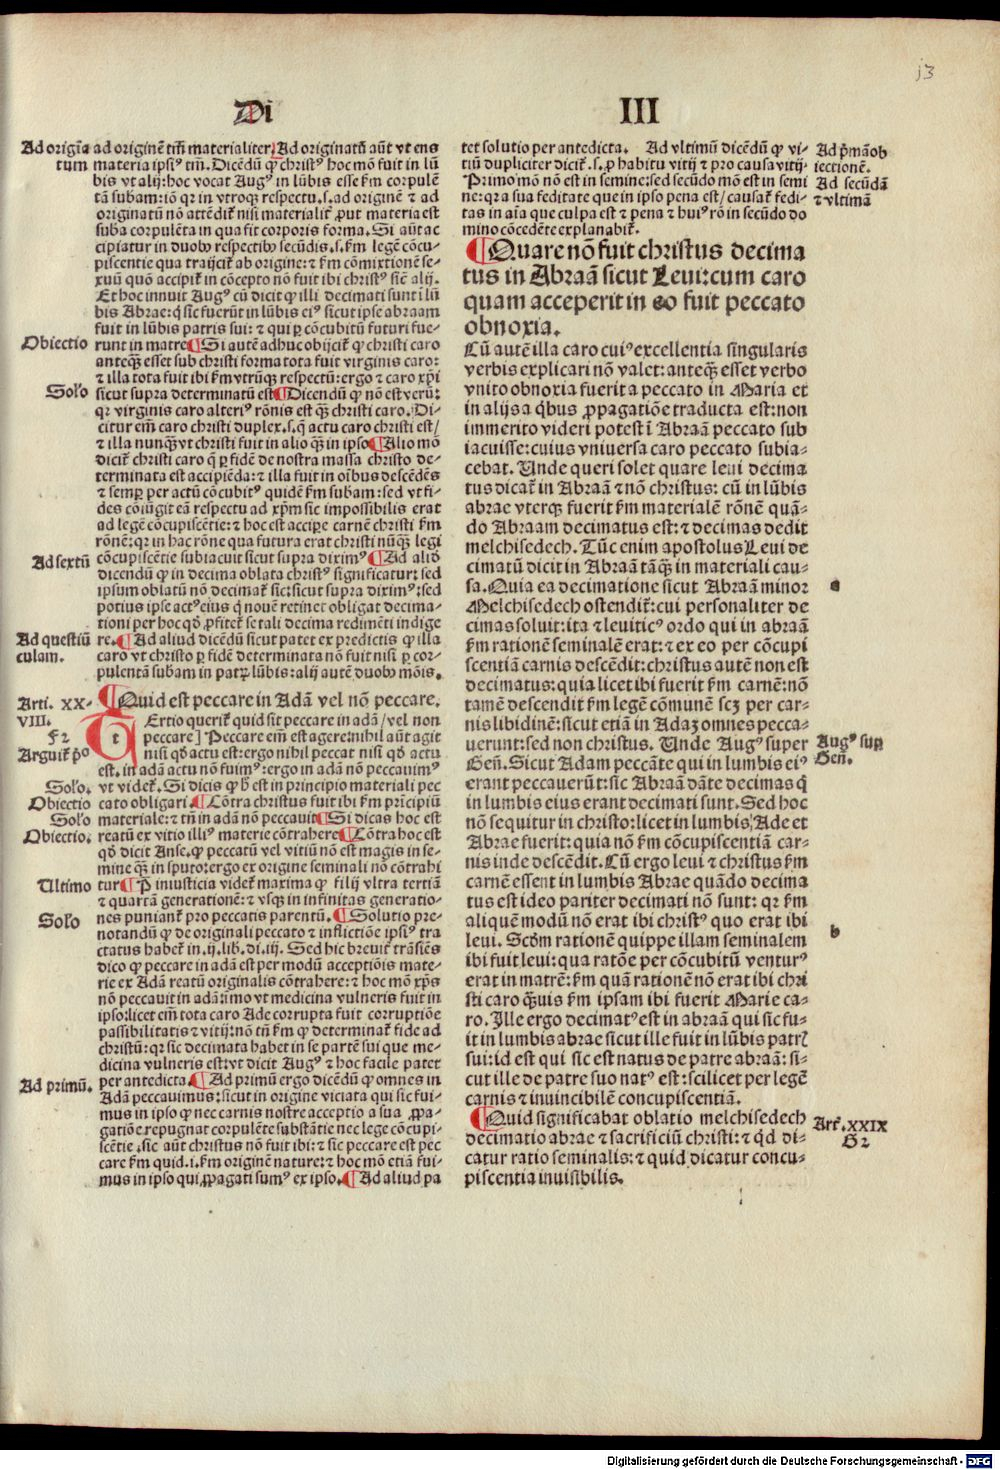 j3
Di
III
Ad origīa
tum
ad originē tm̄ materialiter. Ad originatū aūt vt ens
materia ipsiꝰ tm̄. Dicēdū ꝙ christꝰ hoc mō fuit in lū
bis vt alij: hoc vocat Augꝰ in lūbis esse ẜm corpulē
tā subam: iō qr in vtroqꝫ respectu. s. ad originē ⁊ ad
originatū nō attēdiť nisi materialiť ꝓut materia est
suba corpulēta in qua fit corporis forma. Si aūt ac
cipiatur in duobꝰ respectibꝰ secūdis. s. ẜm legē cōcu-
piscentie qua traijciť ab origine: ⁊ ẜm cōmixtionē se-
xuū quō accipiť in cōcepto nō fuit ibi christꝰ sic̄ alij.
Et hoc innuit Augꝰ cū dicit ꝙ illi decimati sunt ī lū
bis Abrae: q̄ sic fuerūt in lūbis eiꝰ sicut ipse abraam
fuit in lūbis patris sui: ⁊ qui ꝑ cōcubitū futuri fue-
Obiectio
runt in matre ¶ Si autē adhuc obijciť ꝙ christi caro
anteqꝫ esset sub christi forma tota fuit virginis caro:
⁊ illa tota fuit ibi ẜm vtrūqꝫ respectū: ergo ⁊ caro xp̄i
Solo
sicut supra determinatū est ¶ Dicendū ꝙ nō est verū:
qr virginis caro alteriꝰ rōnis est qꝫ christi caro. Di-
citur em̄ caro christi duplex. s. q̄ actu caro christi est/
⁊ illa nunqꝫ vt christi fuit in alio qꝫ in ipso ¶ Alio mō
diciť christi caro q̄ ꝑ fidē de nostra massa christo de-
terminata est accipiēda: ⁊ illa fuit in oībus descēdēs
⁊ semꝑ per actū cōcubitꝰ quidē ẜm subam: sed vt fi-
des cōiūgit eā respectu ad xp̄m sic impossibilis erat
ad legē cōcupiscētie: ⁊ hoc est accipe carnē christi ẜm
rōnē: qr in hac rōne qua futura erat christi nūqꝫ legi
Ad sextū
cōcupiscētie subiacuit sicut supra diximꝰ ¶ Ad aliō
dicendū ꝙ in decima oblata christꝰ significatur: sed
ipsum oblatū nō decimať sic: sicut supra diximꝰ: sed
potius ipse actꝰ eius q̄ nouē retinet obligat decima-
tioni per hoc qō ꝓfiteť se tali decima redimēti indige
Ad questiū
culam.
re. ¶ Ad aliud dicēdū sicut patet ex predictis ꝙ illa
caro vt christo ꝑ fidē determinata nō fuit nisi ꝑ cor-
pulentā subam in patꝝ lūbis: alij autē duobꝰ mōis.
Arti. XX-
VIII.
¶ Quid est peccare in Adā vel nō peccare.
Tertio queriť quid sit peccare in adā/vel non
peccare] Peccare em̄ est agere: nihil aūt agit
Arguiť p̄o
nisi qō actu est: ergo nihil peccat nisi qō actu
est. in adā actu nō fuimꝰ: ergo in adā nō peccauimꝰ
Solo.
vt videť. Si dicis ꝙ hō est in principio materiali pec
Obiectio
cato obligari. ¶ Cōtra christus fuit ibi ẜm prīcipiū
Solo
materiale: ⁊ tn̄ in adā nō peccauit ¶ Si dicas hoc est
Obiectio.
reatū ex vitio illiꝰ materie cōtrahere ¶ Cōtra hoc est
qō dicit Anse. ꝙ peccatū vel vitiū nō est magis in se-
mine qꝫ in sputo: ergo ex origine seminali nō cōtrahi
Ultimo
tur ¶ P iniusticia videť maxima ꝙ filij vltra tertiā
⁊ quartā generationē: ⁊ vsqꝫ in infinitas generatio-
Solo
nes puniant pro peccatis parentū. ¶ Solutio pre-
notandū ꝙ de originali peccato ⁊ inflictiōe ipsiꝰ tra
ctatus habeť in. ij. lib. di. iij. Sed hic breuiť trāsiēs
dico ꝙ peccare in adā est per modū acceptiōis mate-
rie ex Adā reatū originalis cōtrahere: ⁊ hoc mō xp̄s
nō peccauit in adā: īmo vt medicina vulneris fuit in
ipso: licet em̄ tota caro Ade corrupta fuit corruptiōe
passibilitatis ⁊ vitij: nō tn̄ ẜm ꝙ determinať fide ad
christū: qr sic decimata habet in se partē sui que me-
dicina vulneris est: vt dicit Augꝰ ⁊ hoc facile patet
Ad primū.
per antedicta. ¶ Ad primū ergo dicēdū ꝙ omnes in
Adā peccauimus: sicut in origine viciata qui sic fui-
mus in ipso ꝙ nec carnis nostre acceptio a sua ꝓpa-
gatiōe repugnat corpulēte substātie nec lege cōcupi-
scētie. sic aūt christus nō fuit ibi: ⁊ sic peccare est pec
care ẜm quid. i. ẜm originē nature: ⁊ hoc mō etiā fui-
mus in ipso qui ꝓpagati sumꝰ ex ipso. ¶ Ad aliud pa
tet solutio per antedicta. Ad vltimū dicēdū ꝙ vi-
tiū dupliciter diciť. s. ꝓ habitu vitij ⁊ pro causa vitij.
Primo mō nō est in semine: sed secūdo mō est in semi
ne: qr a sua feditate que in ipso pena est/causať fedi-
tas in aīa que culpa est ⁊ pena ⁊ huiꝰ rō in secūdo do
mino cōcedēte explanabiť.
Ad p̄mā ob
iectionē.
Ad secūdā
⁊ vltimā
¶ Quare nō fuit christus decima
tus in Abraā sicut Leui: cum caro
quam acceperit in eo fuit peccato
obnoxia.
Cū autē illa caro cuiꝰ excellentia singularis
verbis explicari nō valet: anteqꝫ esset verbo
vnito obnoxia fuerit a peccato in Maria et
in alijs a q̄bus ꝓpagatiōe traducta est: non
immerito videri potest ī Abraā peccato sub
iacuisse: cuius vniuersa caro peccato subia-
cebat. Unde queri solet quare leui decima
tus dicať in Abraā ⁊ nō christus: cū in lūbis
abrae vterqꝫ fuerit ẜm materialē rōnē quā-
do Abraam decimatus est: ⁊ decimas dedit
melchisedech. Tūc enim apostolus Leui de
cimatū dicit in Abraā tāqꝫ in materiali cau-
sa. Quia ea decimatione sicut Abraā minor
Melchisedech ostendiť: cui personaliter de
cimas soluit: ita ⁊ leuiticꝰ ordo qui in abraā
ẜm rationē seminalē erat: ⁊ ex eo per cōcupi
scentiā carnis descēdit: christus autē non est
decimatus: quia licet ibi fuerit ẜm carnē: nō
tamē descendit ẜm legē cōmunē scꝫ per car-
nis libidinē: sicut etiā in Adaꝫ omnes pecca-
uerunt: sed non christus. Unde Augꝰ super
Gen̄. Sicut Adam peccāte qui in lumbis eiꝰ
erant peccauerūt: sic Abraā dāte decimas q̄
in lumbis eius erant decimati sunt. Sed hoc
nō sequitur in christo: licet in lumbis Ade et
Abrae fuerit: quia nō ẜm cōcupiscentiā car-
nis inde descēdit. Cū ergo leui ⁊ christus ẜm
carnē essent in lumbis Abrae quādo decima
tus est ideo pariter decimati nō sunt: qr ẜm
aliquē modū nō erat ibi christꝰ quo erat ibi
leui. Scdm rationē quippe illam seminalem
ibi fuit leui: qua ratōe per cōcubitū venturꝰ
erat in matrē: ẜm quā rationē nō erat ibi chri
sti caro qꝫuis ẜm ipsam ibi fuerit Marie ca-
ro. Ille ergo decimatꝰ est in abraā qui sic fu-
it in lumbis abrae sicut ille fuit in lūbis patrꝭ
sui: id est qui sic est natus de patre abraā: si-
cut ille de patre suo natꝰ est: scilicet per legē
carnis ⁊ inuincibilē concupiscentiā.
a
Augꝰ suꝑ
Gen̄.
b
¶ Quid significabat oblatio melchisedech
decimatio abrae ⁊ sacrificiū christi: ⁊ q̄d di-
catur ratio seminalis: ⁊ quid dicatur concu-
piscentia inuisibilis.
Art̄. XXIX
Digitalisierung gefördert durch die Deutsche Forschungsgemeinschaft - DFG